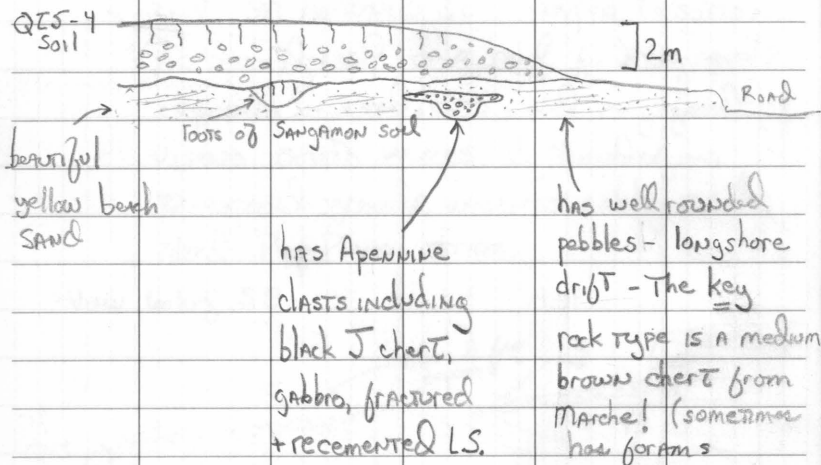 QIS-4
Soil
2m
ROAD
roots of SANGAMON soil
beautiful
yellow beach
SAND
has Apennine
clasts including
black J chert,
gabbro, fractured
+ recemented LS.
has well rounded
pebbles - longshore
drift - The key
rock type is a medium
brown chert from
Marche! (sometimes
has forams